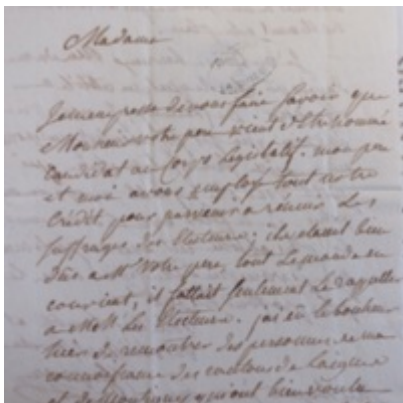 Madame
Jemempresse devous faire savoir que
Monsieur votre pere vient d'Etre nommé
candidat au Corps Legislatif. mon pere
et moi avons Employé tout notre
Credit pour parvenir a réunir Les
suffrages des Electeurs; ils etaient bien
dûs a Mr Votre pere, tout Le monde en
convient, il fallait seulement Le rappeller
a MM Les Electeurs. j'ai eu Le bonheur
hier de rencontrer des personnes de ma
connoissance des cantons de
et de qui ont bien voulu